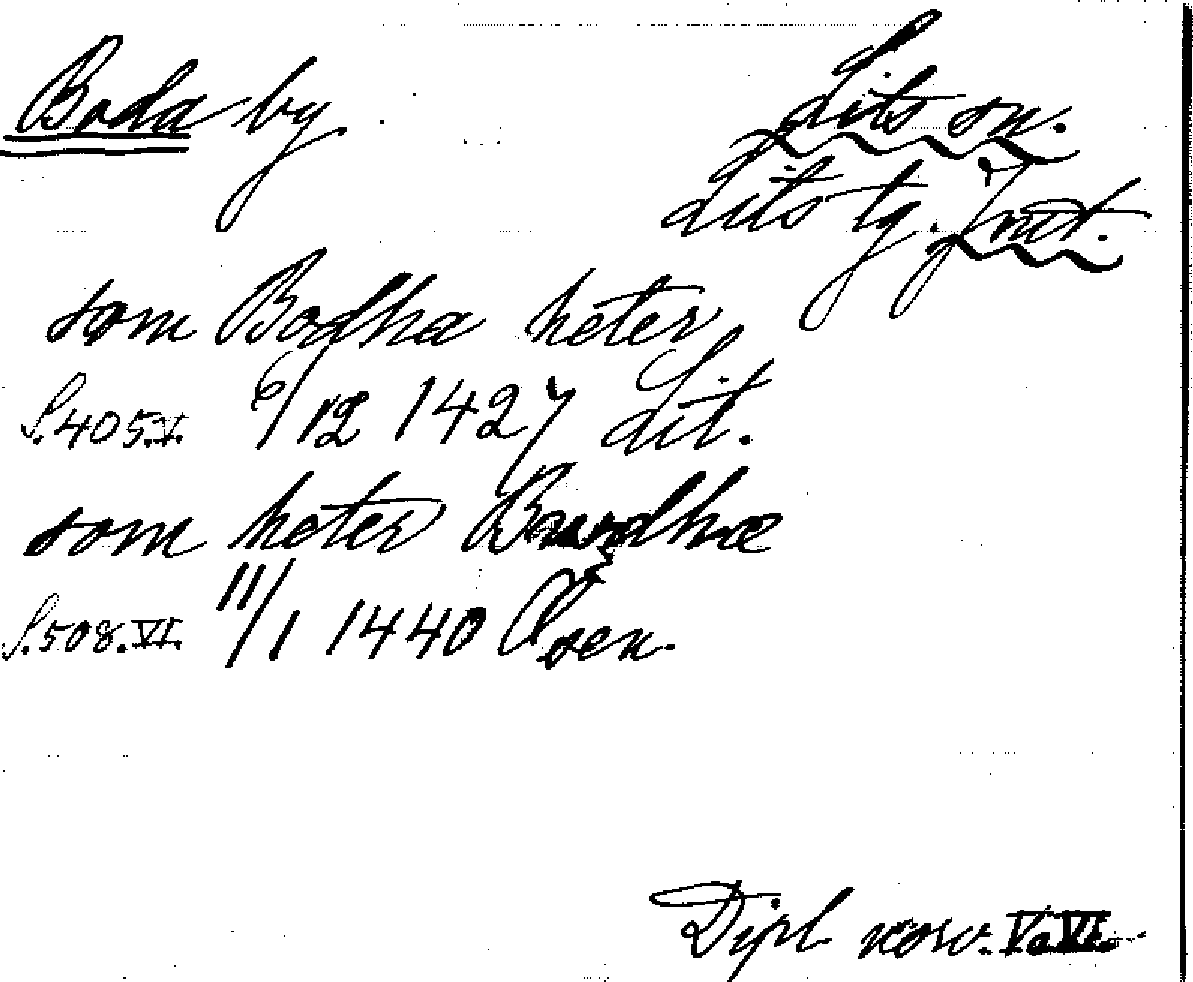 Boda by
Lits sn.
Lits tg. Jmt.
som Bodha heter
S. 405. V. 6/12 1427 Lit.
som heter Bawdhæ
S. 508. VI. 11/1 1440 Åsen.
Dipl norv. V o VI.